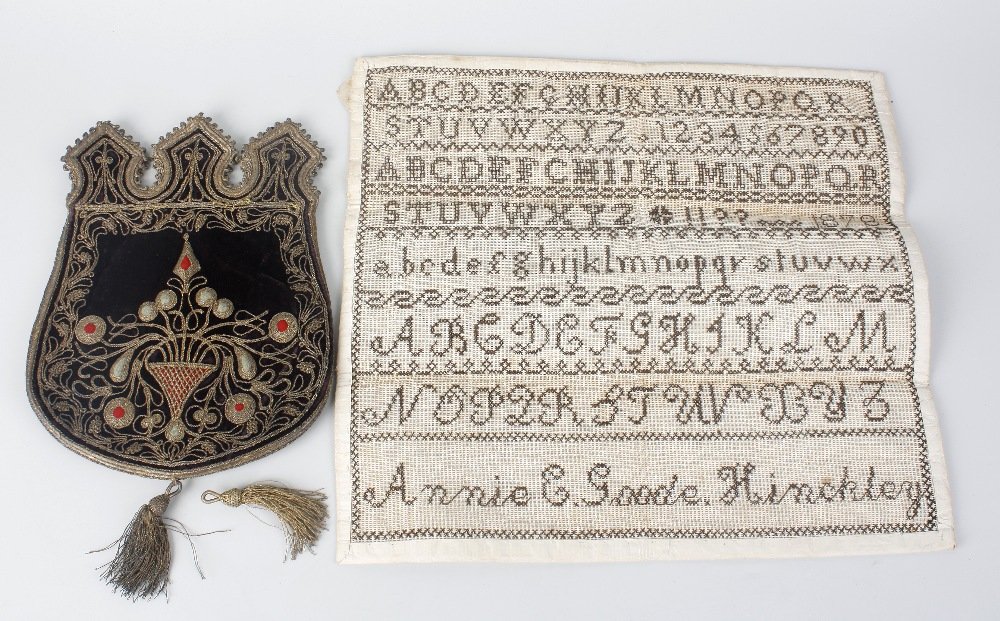 ABCDEFGHIJKLMNOPQR
STUVWXYZ . 1234567890
ABCDEFGHIJKLMNOPQR
STUVWXYZ 1878
abcdefghijklmnopqrstuvwx
ABCDEFGHIJKLM
NOPQRSTUVWXYZ
Annie E. Goode. Hinckley